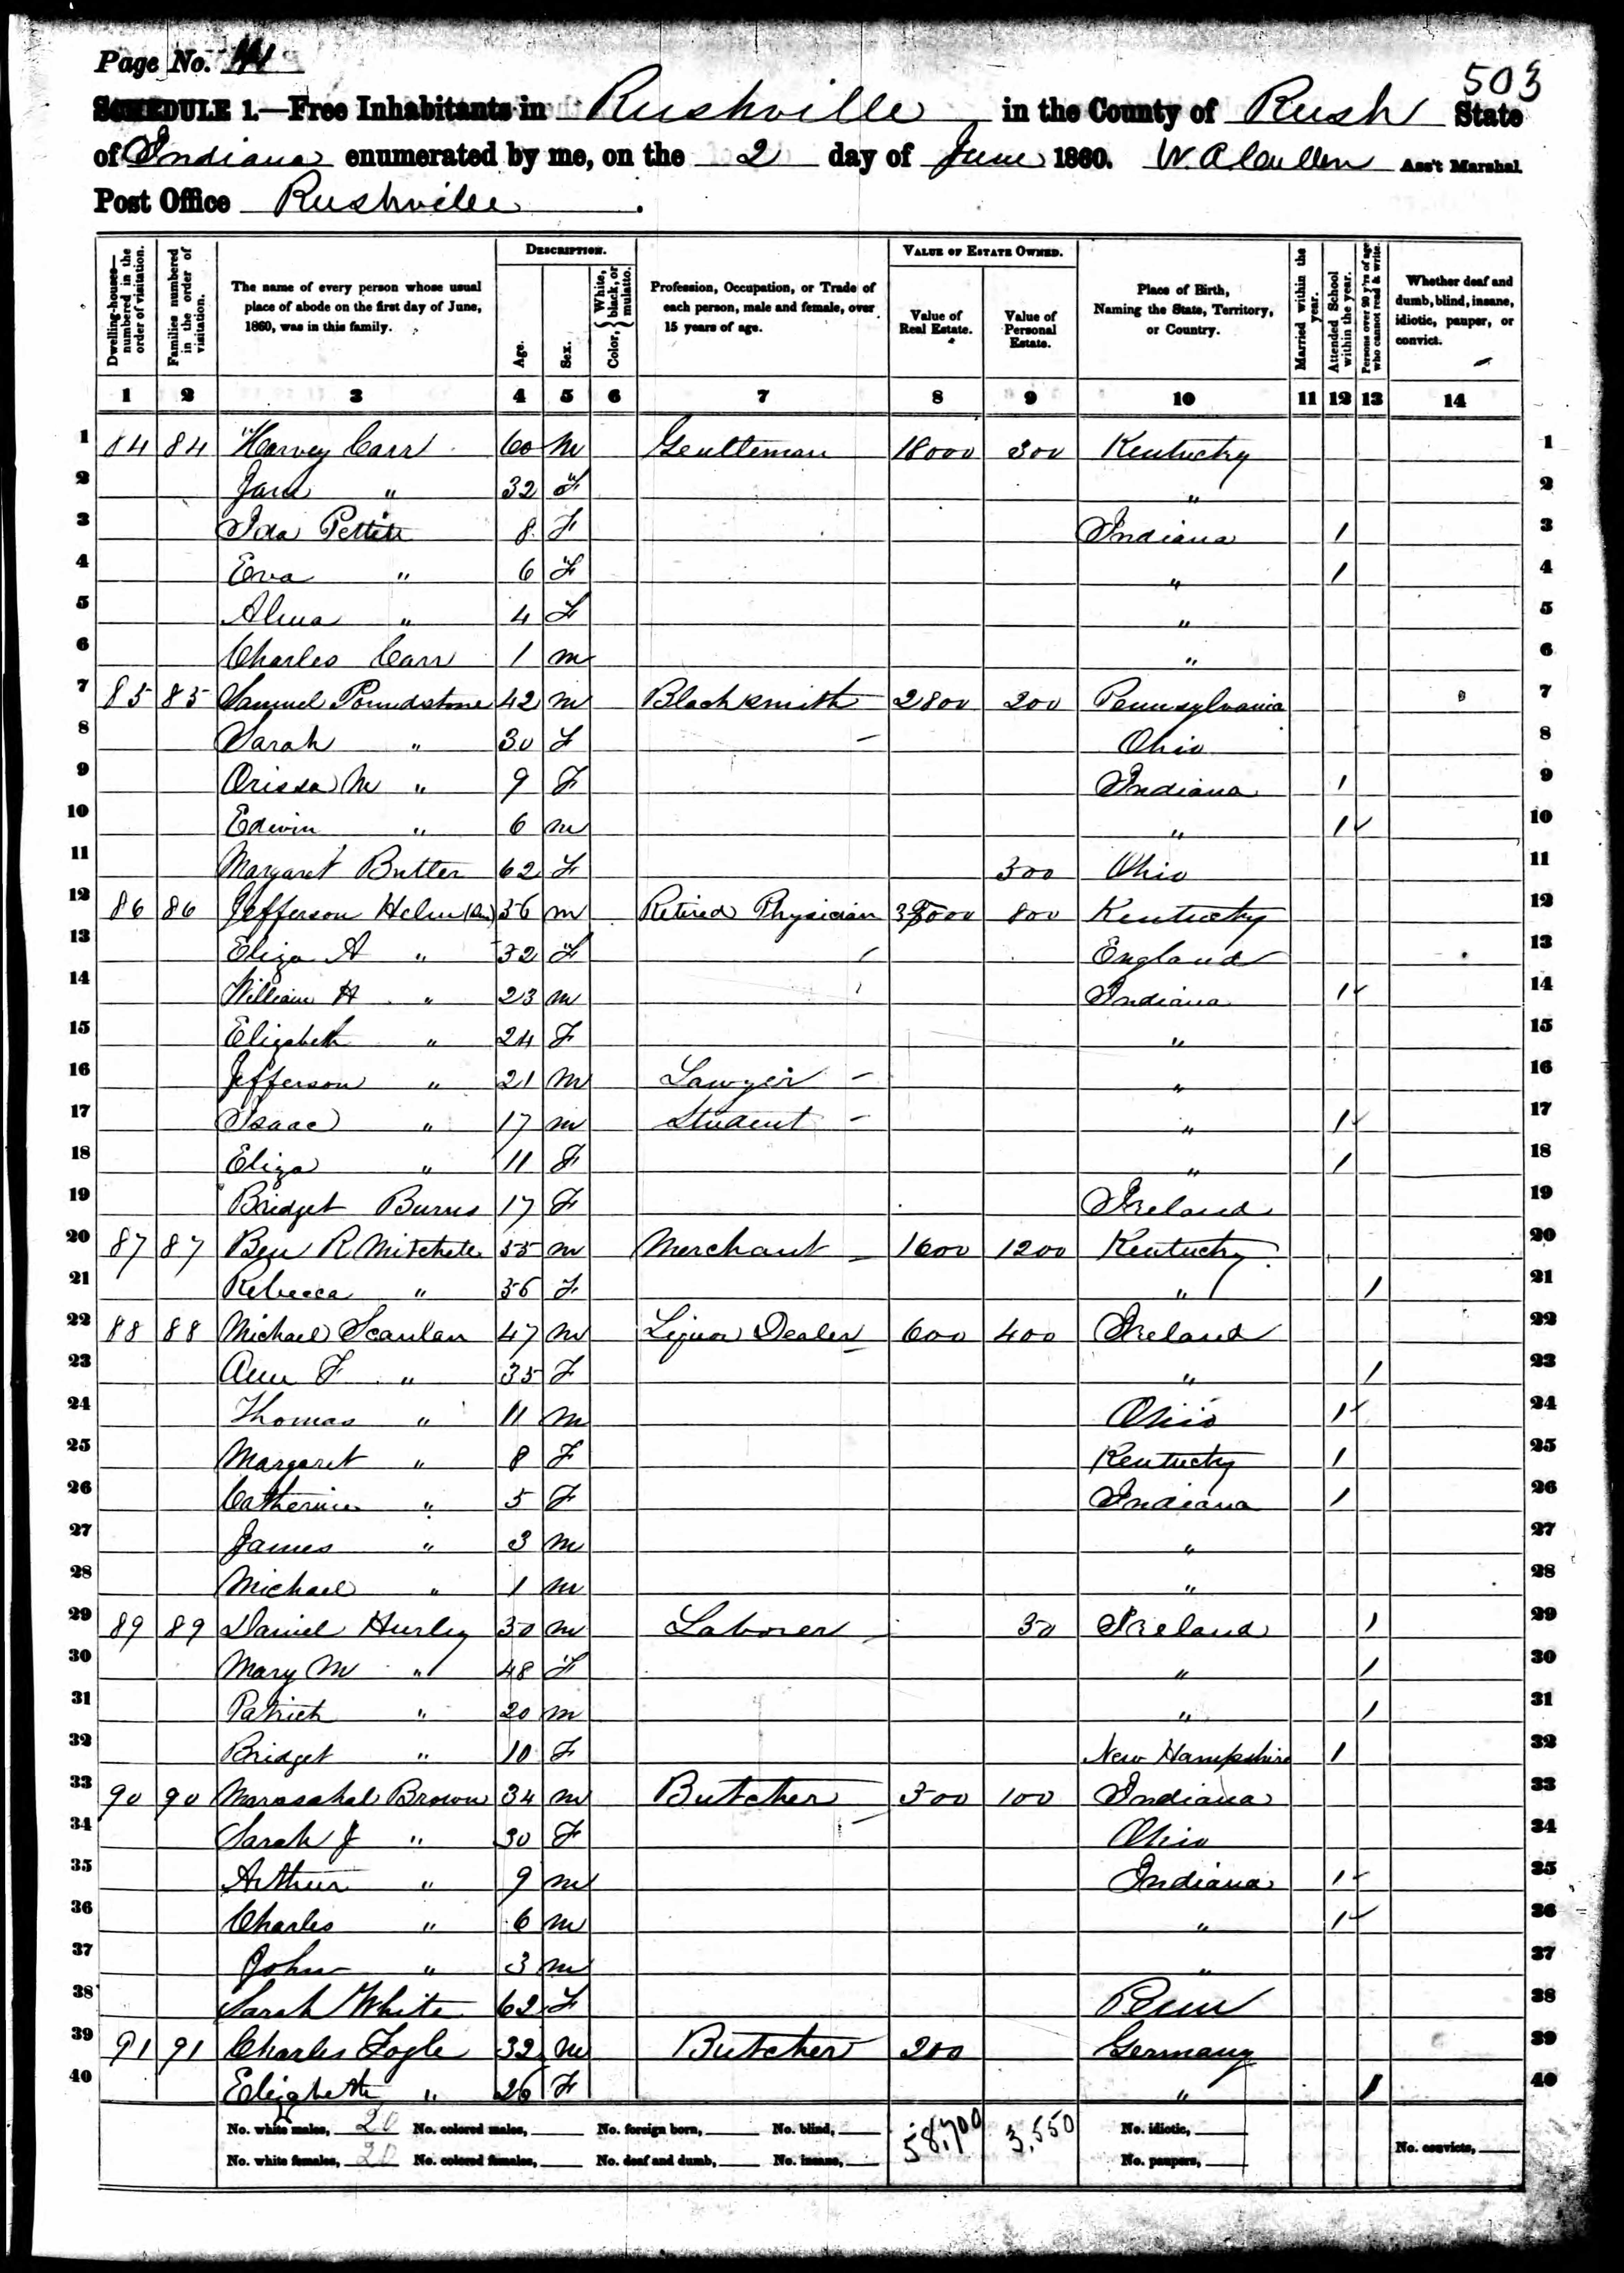 Page No. 41
503
SCHEDULE 1.—Free Inhabitants in Rushville in the County of Rush State
of Indiana enumerated by me, on the 2 day of June 1860. W. A. Cullen Ass't Marshal.
Post Office Rushville.
Dwelling-houses—numbered in the order of visitation.
Families numbered in the order of visitation.
The name of every person whose usual place of abode on the first day of June, 1860, was in this family.
DESCRIPTION.
Age.
Sex.
Color, { White, black, or mulatto.
Profession, Occupation, or Trade of each person, male and female, over 15 years of age.
VALUE OF ESTATE OWNED.
Value of Real Estate.
Value of Personal Estate.
Place of Birth, Naming the State, Territory, or Country.
Married within the year.
Attended School within the year.
Persons over 20 y'rs of age who cannot read & write.
Whether deaf and dumb, blind, insane, idiotic, pauper, or convict.
1 2 3 4 5 6 7 8 9 10 11 12 13 14
1 84 84 Harvey Carr 60 m Gentleman 18000 300 Kentucky 1
2 Jane " 32 F " 2
3 Ida Pettit 8 F Indiana / 3
4 Eva " 6 F " / 4
5 Alma " 4 F " 5
6 Charles Carr 1 m " 6
7 85 85 Samuel Poundstone 42 m Blacksmith 2800 200 Pennsylvania 7
8 Sarah " 30 F Ohio 8
9 Orissa M " 9 F Indiana / 9
10 Edwin " 6 m " / 10
11 Margaret Butler 62 F 300 Ohio 11
12 86 86 Jefferson Helm (Sen) 56 m Retired Physician 35000 800 Kentucky 12
13 Eliza A " 32 F England 13
14 William H " 23 m Indiana / 14
15 Elizabeth " 24 F " 15
16 Jefferson " 21 m Lawyer " 16
17 Isaac " 17 m Student " / 17
18 Eliza " 11 F " / 18
19 Bridget Burns 17 F Ireland 19
20 87 87 Ben R Mitchell 55 m Merchant 1600 1200 Kentucky 20
21 Rebecca " 56 F " / 21
22 88 88 Michael Scanlan 47 m Liquor Dealer 600 400 Ireland 22
23 Ann F " 35 F " / 23
24 Thomas " 11 m Ohio / 24
25 Margaret " 8 F Kentucky / 25
26 Catherine " 5 F Indiana / 26
27 James " 3 m " 27
28 Michael " 1 m " 28
29 89 89 Daniel Hurley 50 m Laborer 50 Ireland / 29
30 Mary M " 48 F " / 30
31 Patrick " 20 m " / 31
32 Bridget " 10 F New Hampshire / 32
33 90 90 Marashal Brown 34 m Butcher 500 100 Indiana 33
34 Sarah J " 30 F Ohio 34
35 Arthur " 9 m Indiana / 35
36 Charles " 6 m " / 36
37 John " 3 m " 37
38 Sarah White 62 F Penn 38
39 91 91 Charles Fogle 32 m Butcher 200 Germany 39
40 Elizabeth " 26 F " / 40
No. white males, 20 No. colored males, No. foreign born, No. blind, 58,700 3,550 No. idiotic,
No. white females, 20 No. colored females, No. deaf and dumb, No. insane, No. paupers, No. convicts,